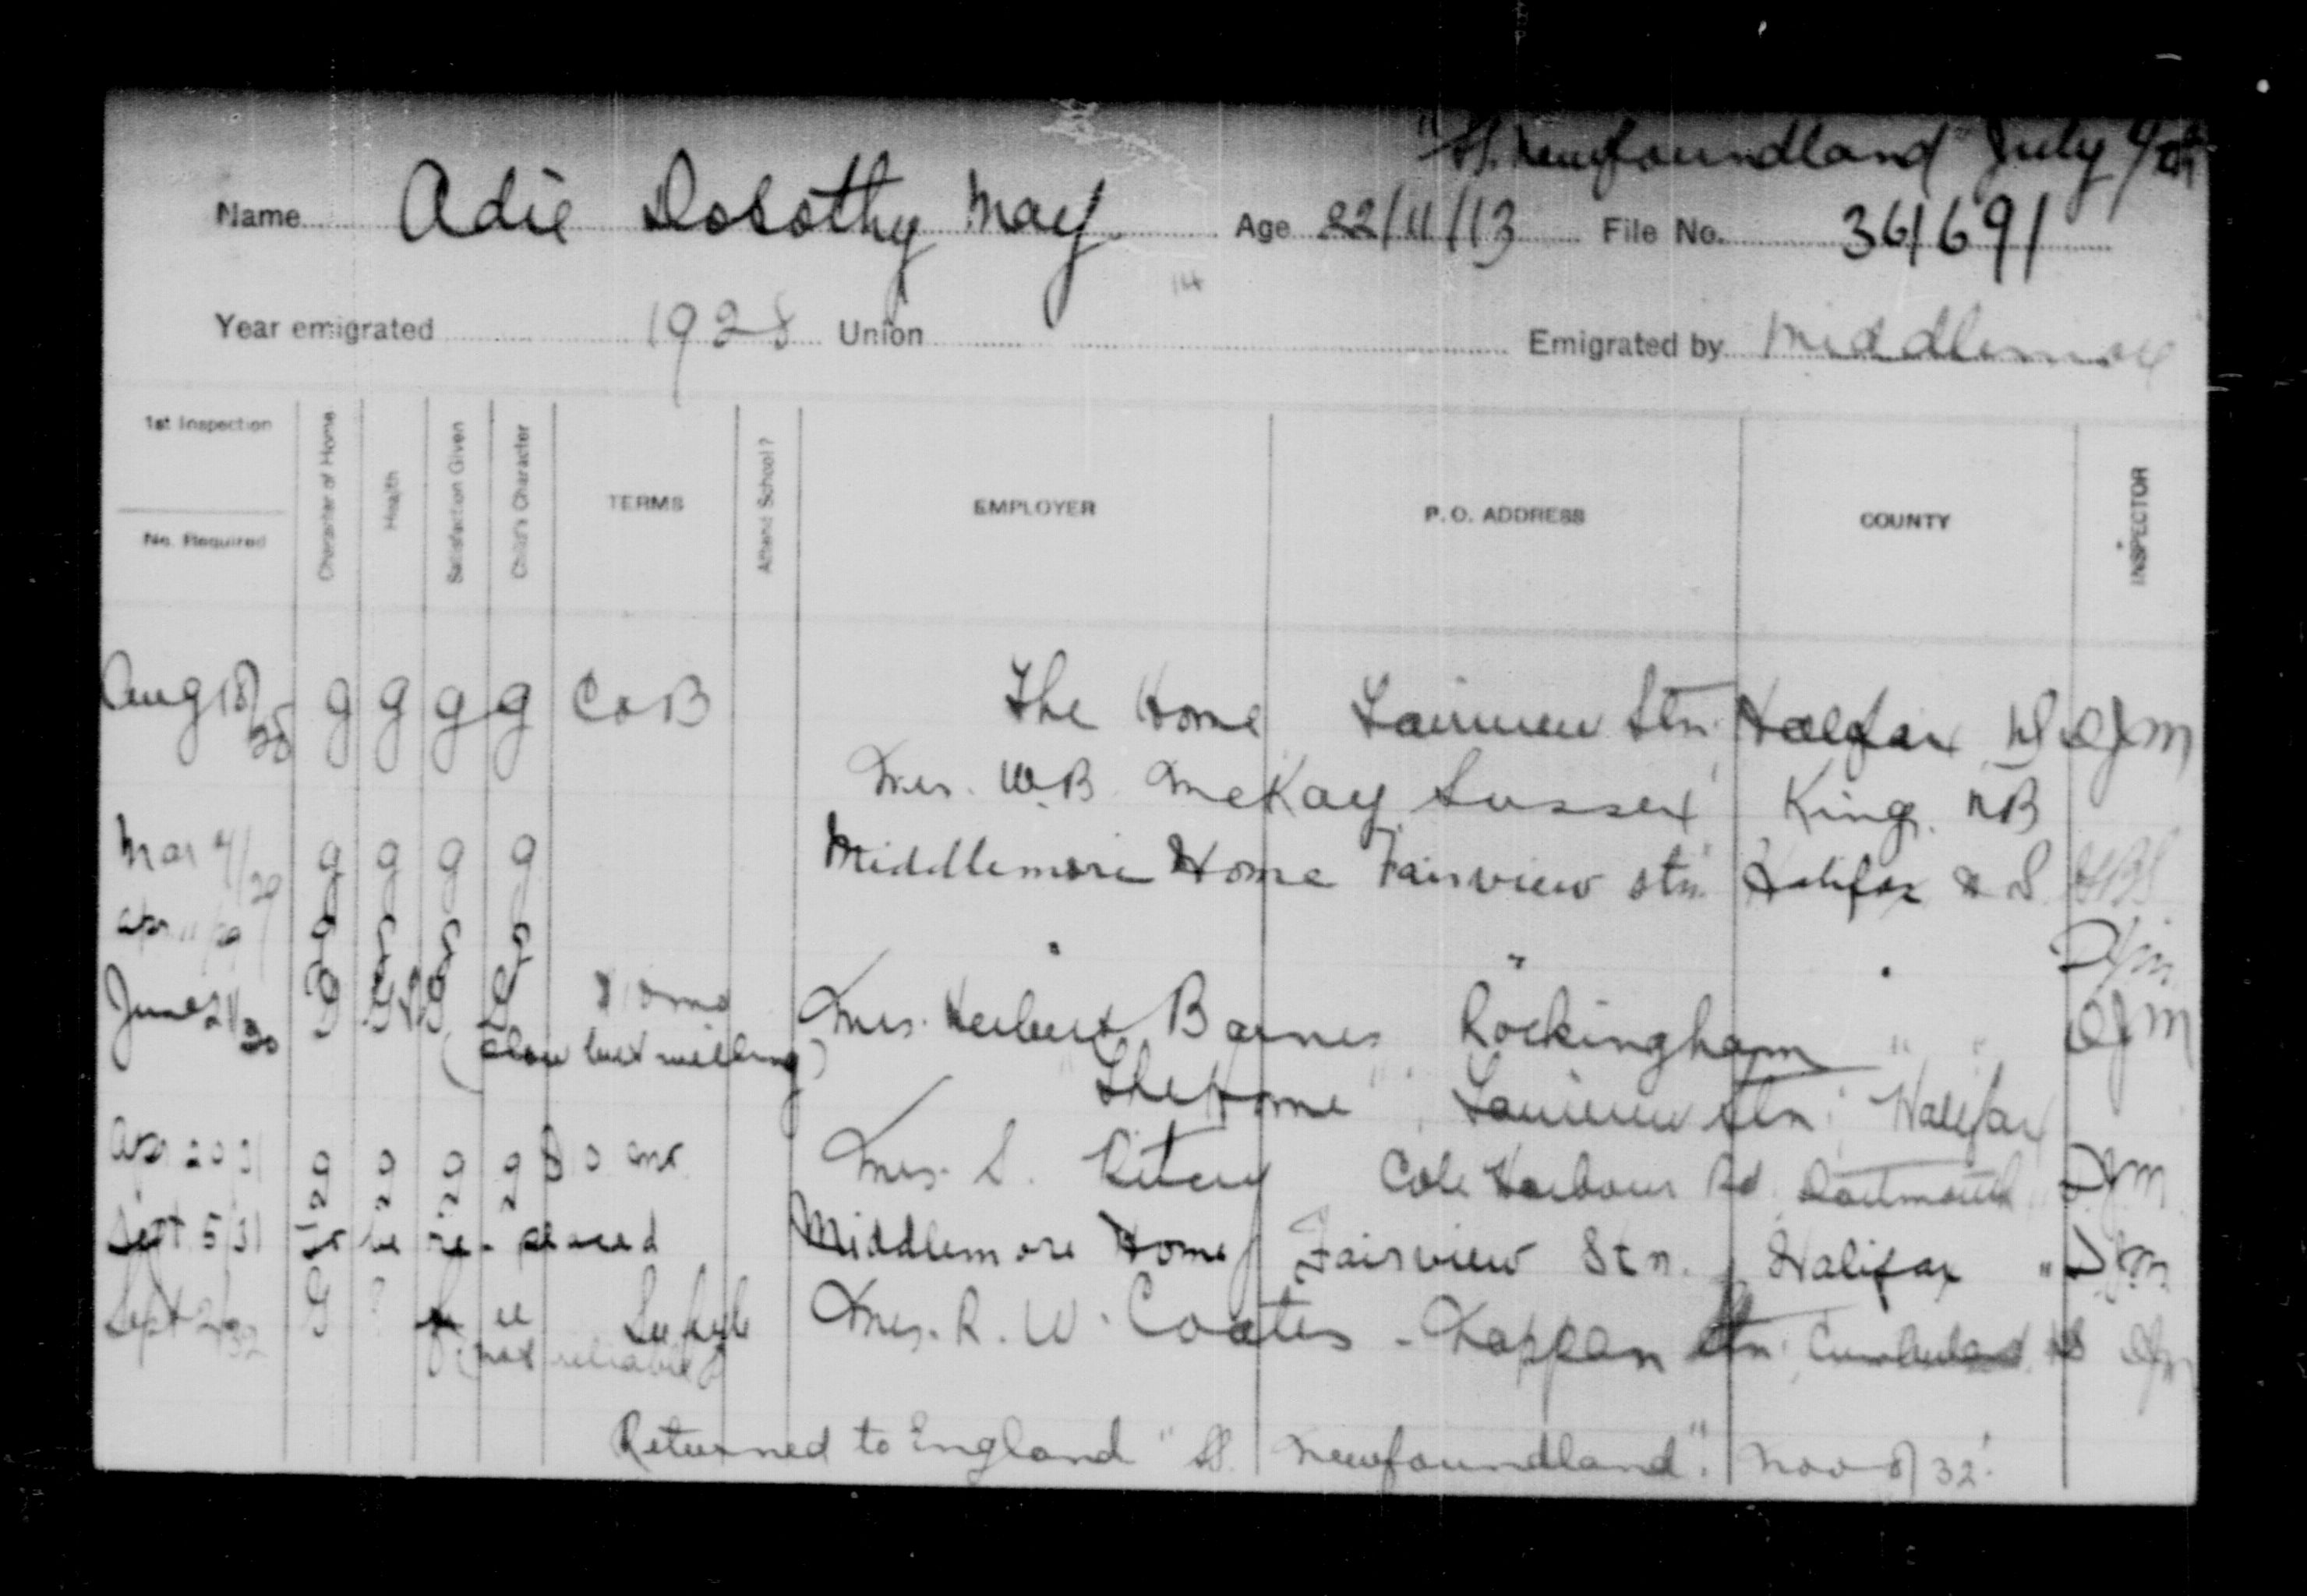 "SS. Newfoundland" July
Name Adie Dorothy May Age 22/11/13 File No. 361691
Year emigrated 1928 Union Emigrated by Middlemore
1st Inspection
No. Required
Character of Home
Health
Satisfaction Given
Child's Character
TERMS
Attend School?
EMPLOYER
P. O. ADDRESS
COUNTY
INSPECTOR
Aug 18/28 g g g g C & B The Home Fairview Stn. Halifax NS
Mrs. W.B. McKay Sussex Kings. NB
Mar 4/29 g g g g Middlemore Home Fairview stn. Halifax N S.
Apr 11/29 g g g g " " "
June 21/30 g g g g $10 mo Mrs. Herbert Barnes Rockingham " "
(slow but willing)
The Home Fairview Stn. Halifax
Apr 20 31 g g g g mo. Mrs. S. Cole Harbour Rd. Dartmouth
Sept 5 31 to be re-placed Middlemore Home Fairview Stn. Halifax "
Sept 2/32 G ? Mrs. R. W. Coates - Nappan Stn. Cumberland NS
(not reliable)
Returned to England "SS. Newfoundland". Nov 8/32.